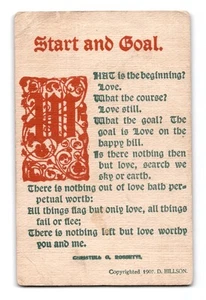 Start and Goal.
WHAT is the beginning?
Love.
What the course?
Love still.
What the goal? The
goal is Love on the
happy hill.
Is there nothing then
but love, search we
sky or earth.
There is nothing out of love hath per-
petual worth:
All things flag but only love, all things
fail or flee;
There is nothing left but love worthy
you and me.
CHRISTINA G. ROSSETTI.
Copyrighted 1907. D. HILLSON.